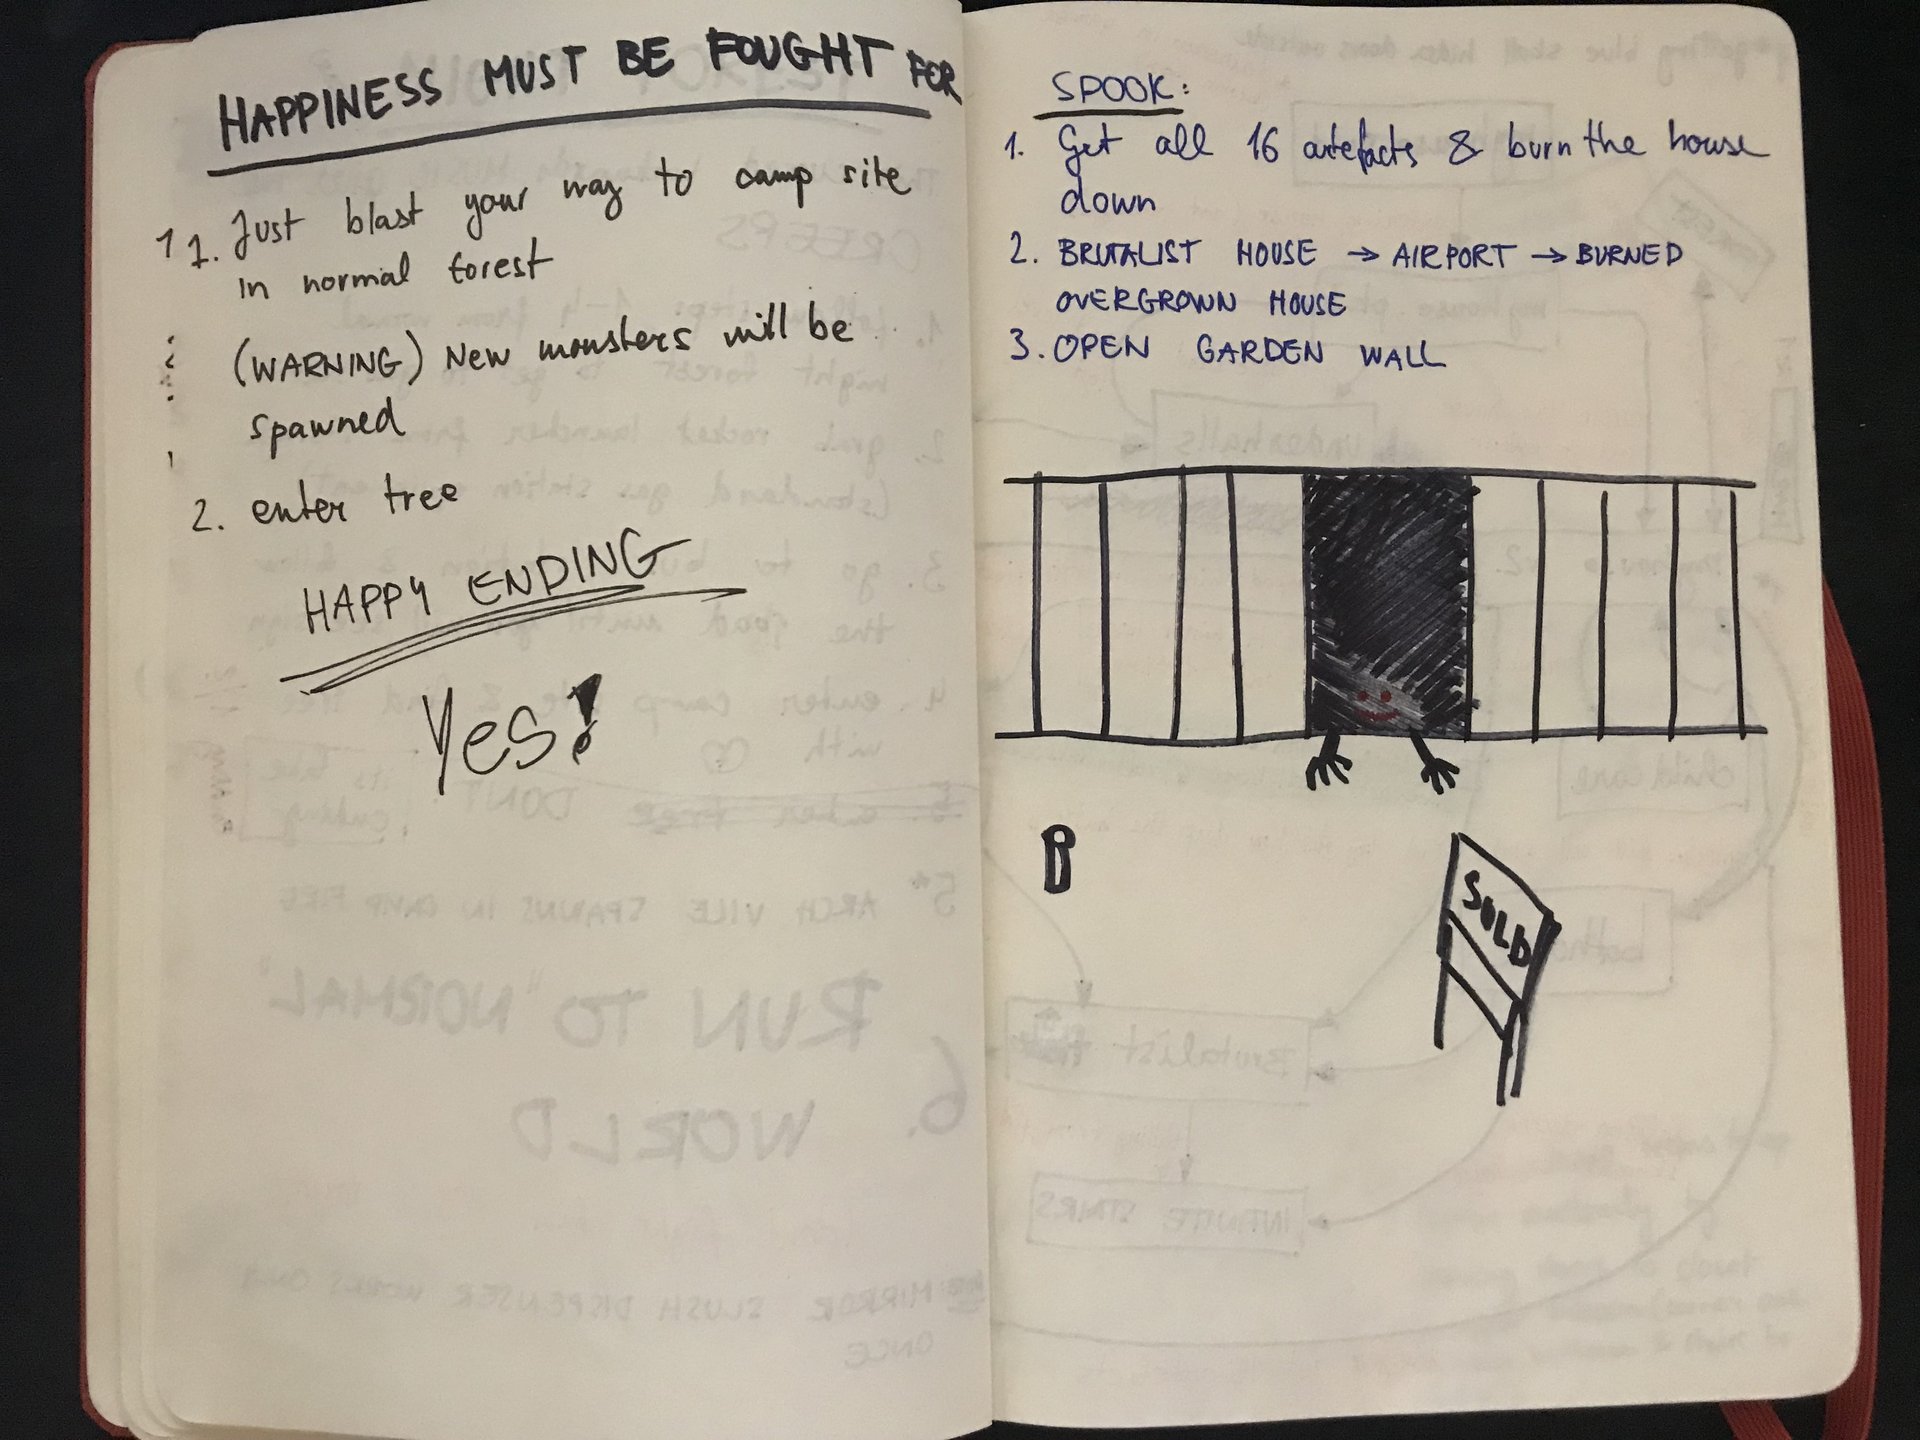 HAPPINESS MUST BE FOUGHT FOR
1 1. Just blast your way to camp site
in normal forest
(WARNING) New monsters will be
spawned
2. enter tree
HAPPY ENDING
Yes!
SPOOK:
1. Get all 16 artefacts & burn the house
down
2. BRUTALIST HOUSE → AIRPORT → BURNED
OVERGROWN HOUSE
3. OPEN GARDEN WALL
SOLD